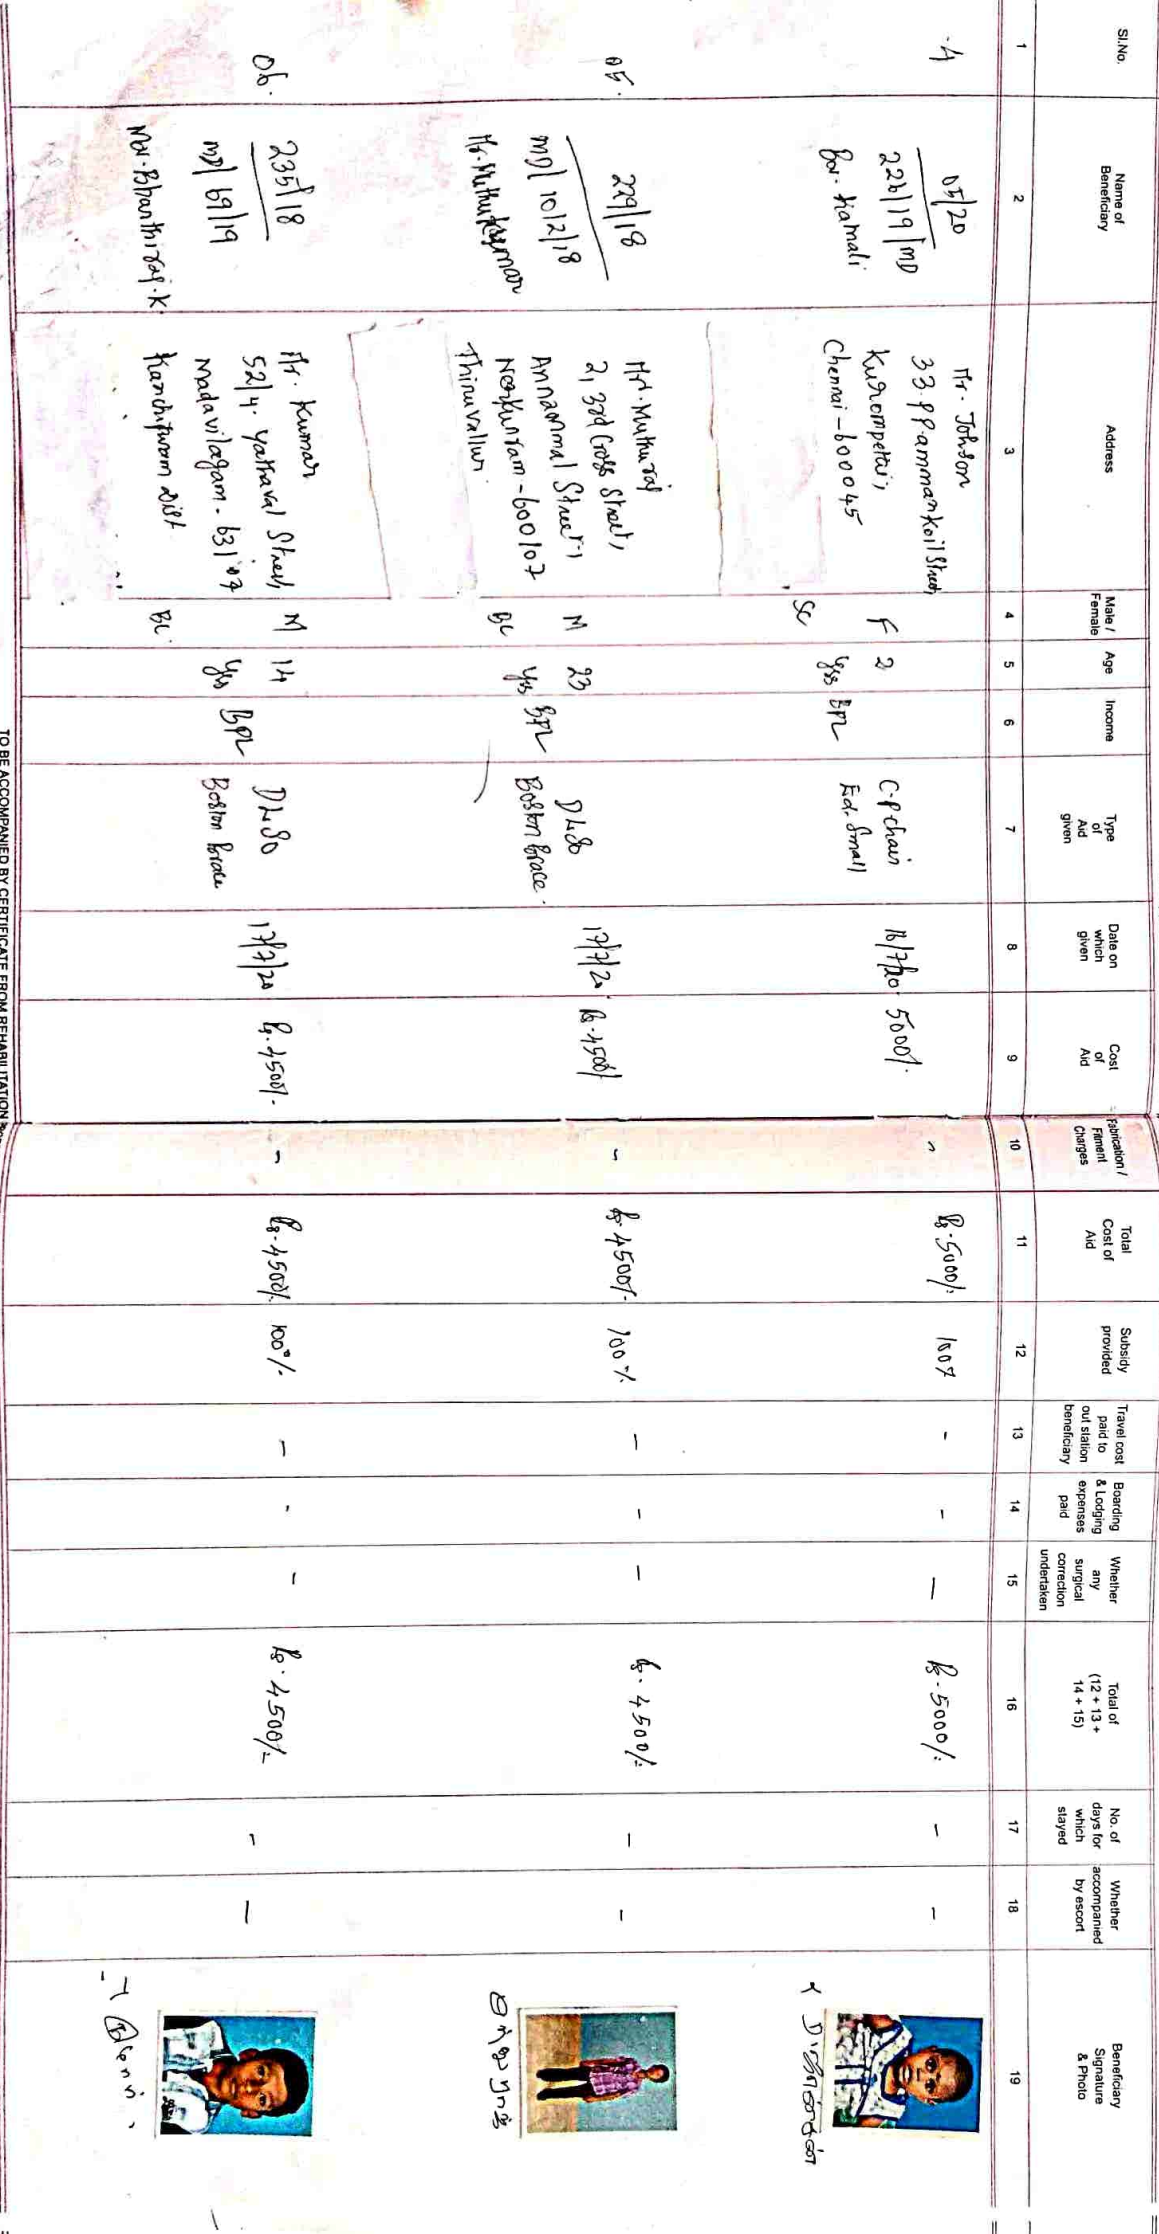 Sl.No.
Name of
Beneficiary
Address
Male /
Female
Age
Income
Type
of
Aid
given
Date on
which
given
Cost
of
Aid
Fabrication /
Fitment
Charges
Total
Cost of
Aid
Subsidy
provided
Travel cost
paid to
out station
beneficiary
Boarding
& Lodging
expenses
paid
Whether
any
surgical
correction
undertaken
Total of
(12 + 13 +
14 + 15)
No. of
days for
which
stayed
Whether
accompanied
by escort
Beneficiary
Signature
& Photo
1 2 3 4 5 6 7 8 9 10 11 12 13 14 15 16 17 18 19
05/20
226/19/MD
Mr. Johson
33. P.P. amman Koil Street,
Chennai - 600045
F
SC
2
yrs
BPL
C.P chair
Small
16/7/20
5000/-
Rs. 5000/-
100%
-
-
-
Rs. 5000/-
-
-
05.
229/18
MD/1012/18
Mr. Muthukumar
Mr. Muthuraj
2, 3rd Cross Street,
Annammal Street,
Nerkunram - 600107
Thiruvallur
M
BC
23
yrs
BPL
DLSO
Boston Brace.
17/7/20
Rs. 4500/-
-
Rs. 4500/-
100%
-
-
-
Rs. 4500/-
-
-
முத்துராஜ்
06.
235/18
MD/69/19
Mr. Kumar
52/4. Street,
Madavilagam -
Kanchipuram Dist
M
BC
14
yrs
BPL
DLSO
Boston Brace
17/7/20
Rs. 4500/-
-
Rs. 4500/-
100%
-
-
-
Rs. 4500/-
-
-
TO BE ACCOMPANIED BY CERTIFICATE FROM REHABILITATION